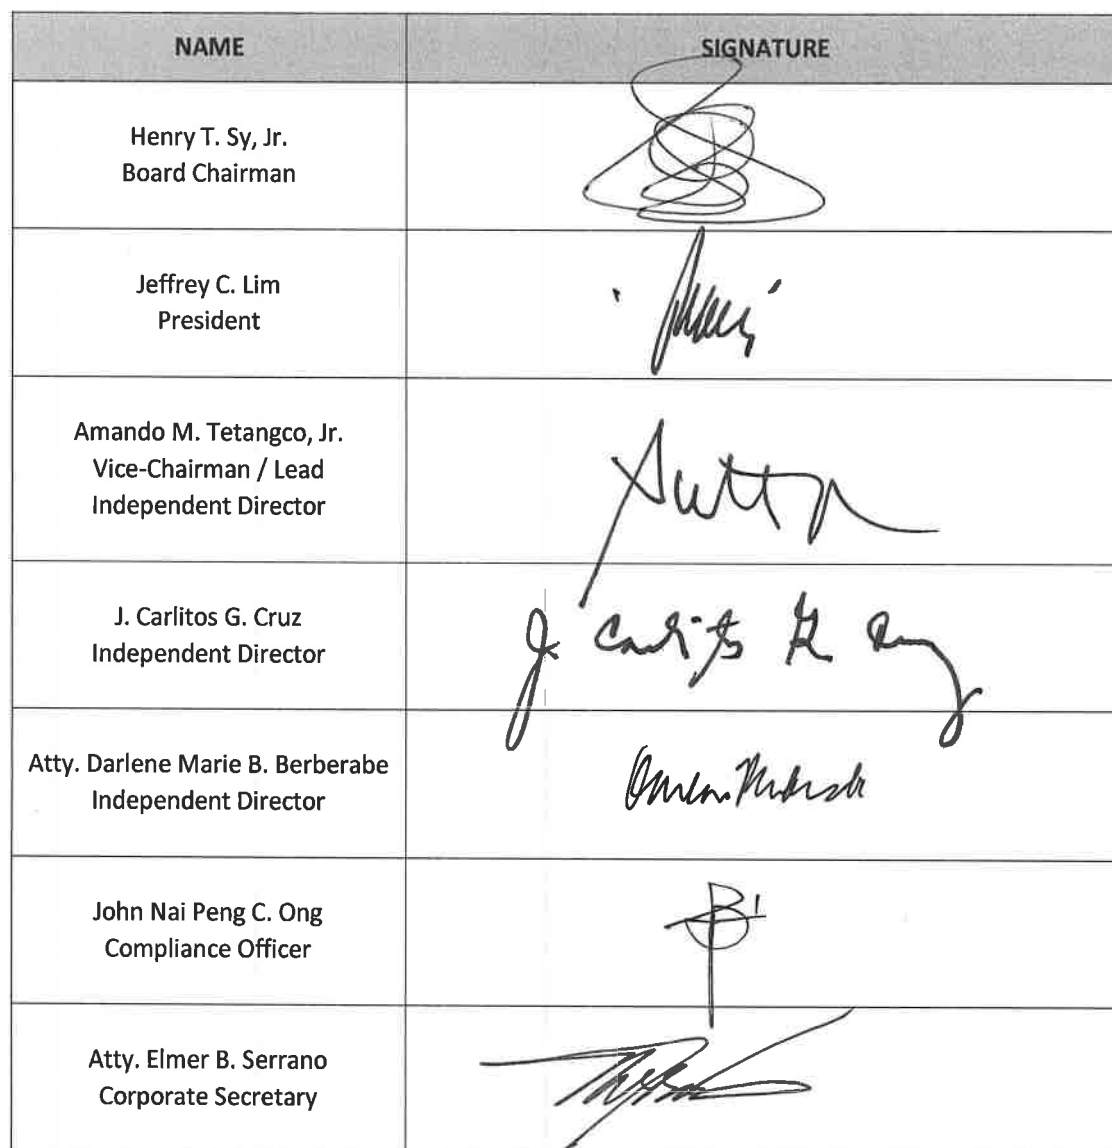 NAME
SIGNATURE
Henry T. Sy, Jr.
Board Chairman
Jeffrey C. Lim
President
Amando M. Tetangco, Jr.
Vice-Chairman / Lead
Independent Director
J. Carlitos G. Cruz
Independent Director
J. Carlitos G. Cruz
Atty. Darlene Marie B. Berberabe
Independent Director
John Nai Peng C. Ong
Compliance Officer
Atty. Elmer B. Serrano
Corporate Secretary